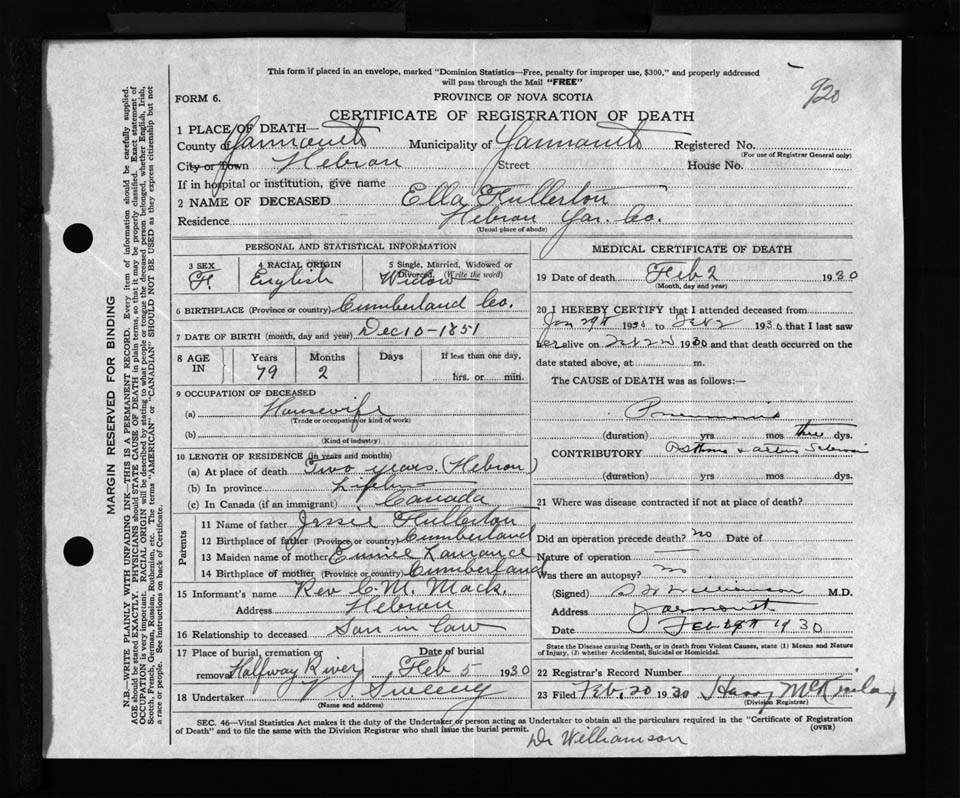 This form if placed in an envelope, marked "Dominion Statistics—Free, penalty for improper use, $300," and properly addressed
will pass through the Mail "FREE"
920
FORM 6.
PROVINCE OF NOVA SCOTIA
CERTIFICATE OF REGISTRATION OF DEATH
1 PLACE OF DEATH—
County of Yarmouth Municipality of Yarmouth Registered No.
(For use of Registrar General only)
City or Town Hebron Street House No.
If in hospital or institution, give name
2 NAME OF DECEASED Ella Fullerton
Residence Hebron Yar. Co.
(Usual place of abode)
PERSONAL AND STATISTICAL INFORMATION
3 SEX 4 RACIAL ORIGIN 5 Single, Married, Widowed or Divorced (Write the word)
F. English Widow
6 BIRTHPLACE (Province or country) Cumberland Co.
7 DATE OF BIRTH (month, day and year) Dec 10-1851
8 AGE IN Years Months Days If less than one day,
79 2 hrs. or min.
9 OCCUPATION OF DECEASED
(a) Housewife
(Trade or occupation or kind of work)
(b)
(Kind of industry)
10 LENGTH OF RESIDENCE (in years and months)
(a) At place of death Two years. (Hebron)
(b) In province Life
(c) In Canada (if an immigrant) Canada
Parents
11 Name of father Jessie Fullerton
12 Birthplace of father (Province or country) Cumberland
13 Maiden name of mother Eunice Laurance
14 Birthplace of mother (Province or country) Cumberland
15 Informant's name Rev C. M. Mack.
Address Hebron
16 Relationship to deceased Son in law
17 Place of burial, cremation or removal Halfway River Date of burial Feb 5 1930
18 Undertaker V S Sweeny
(Name and address)
MEDICAL CERTIFICATE OF DEATH
19 Date of death Feb 2 1930
(Month, day and year)
20 I HEREBY CERTIFY that I attended deceased from
Jan 29th 1930 to Feb 2 1930 that I last saw
her alive on Feb 2nd 1930 and that death occurred on the
date stated above, at m.
The CAUSE of DEATH was as follows:—
Pneumonia
(duration) yrs mos three dys.
CONTRIBUTORY Asthma & arterio Sclerosis
(duration) yrs. mos. dys.
21 Where was disease contracted if not at place of death?
Did an operation precede death? no Date of
Nature of operation
Was there an autopsy? no
(Signed) Williamson M.D.
Address Yarmouth
Date Feb 1930
State the Disease causing Death, or in death from Violent Causes, state (1) Means and Nature
of Injury, (2) whether Accidental, Suicidal or Homicidal.
22 Registrar's Record Number
23 Filed Feb. 20 1930 Harry McKinlay
(Division Registrar)
SEC. 46—Vital Statistics Act makes it the duty of the Undertaker or person acting as Undertaker to obtain all the particulars required in the "Certificate of Registration
of Death" and to file the same with the Division Registrar who shall issue the burial permit.
(OVER)
Dr Williamson
MARGIN RESERVED FOR BINDING
N.B.—WRITE PLAINLY WITH UNFADING INK—THIS IS A PERMANENT RECORD. Every item of information should be carefully supplied.
AGE should be stated EXACTLY. PHYSICIANS should STATE CAUSE OF DEATH in plain terms, so that it may be properly classified. Exact statement of
OCCUPATION is very important. RACIAL ORIGIN will be described by stating to what people or tongue the deceased person belonged, whether English, Irish,
Scotch, French, German, Russian, Ruthenian, etc. The terms "AMERICAN" or "CANADIAN" SHOULD NOT BE USED as they express citizenship but not
a race or people. See instructions on back of Certificate.